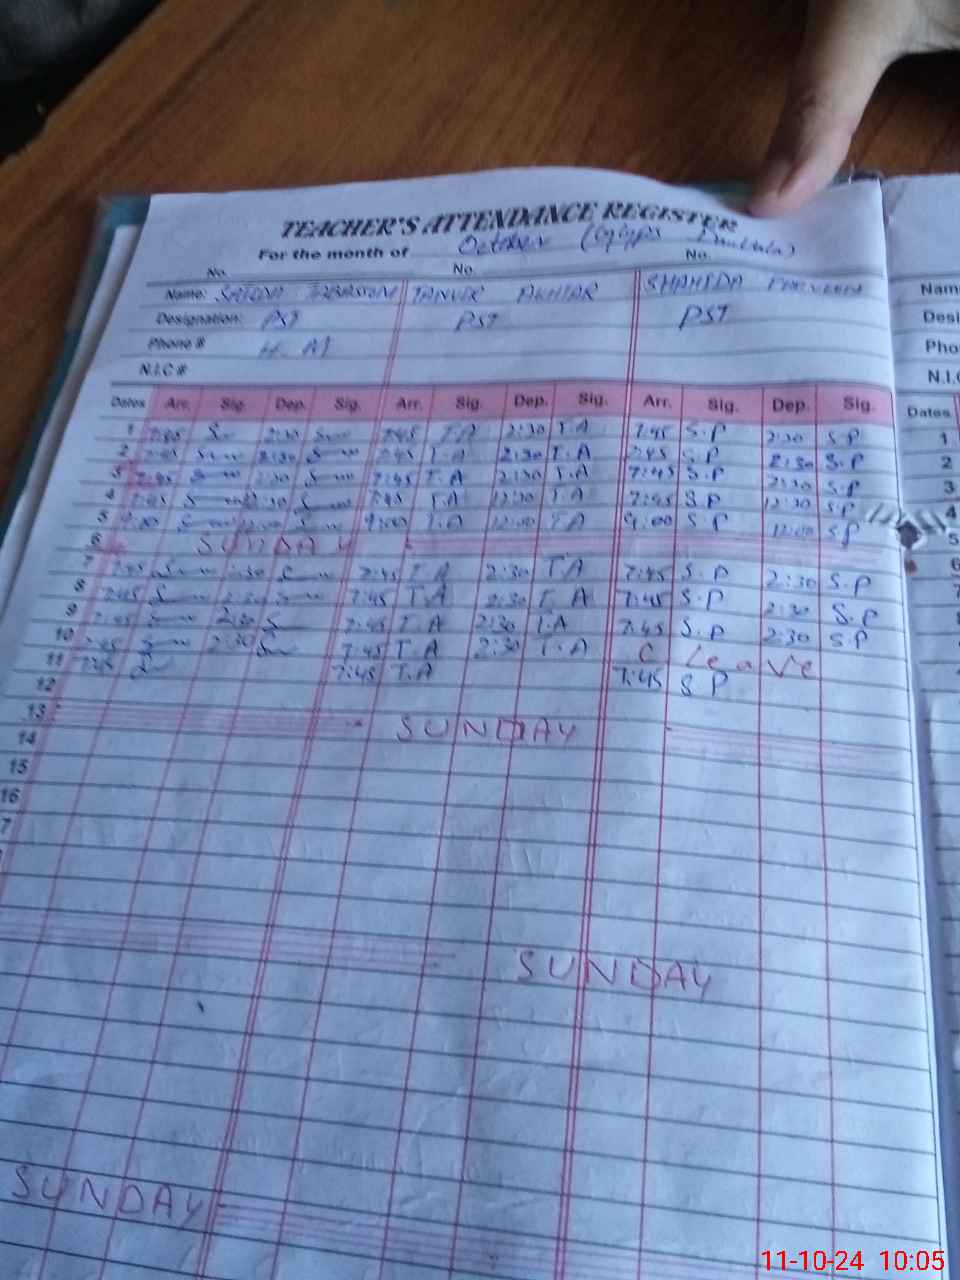 TEACHER'S ATTENDANCE REGISTER
For the month of October
No. No. No.
Name: TABASSUM TANVIR AKHTAR SHAHIDA PARVEEN
Designation: PST PST PST
Phone # H.M
N.I.C #
Dates Arr. Sig. Dep. Sig. Arr. Sig. Dep. Sig. Arr. Sig. Dep. Sig.
1 7:45 2:30 7:45 T.A 2:30 T.A 7:45 S.P 2:30 S.P
2 7:45 2:30 7:45 T.A 2:30 T.A 7:45 S.P 2:30 S.P
3 7:45 2:30 7:45 T.A 2:30 T.A 7:45 S.P 2:30 S.P
4 7:45 12:30 7:45 T.A 12:30 T.A 7:45 S.P 12:30 S.P
5 9:00 12:00 9:00 T.A 12:00 T.A 9:00 S.P 12:00 S.P
6 SUNDAY
7 7:45 2:30 7:45 T.A 2:30 T.A 7:45 S.P 2:30 S.P
8 7:45 2:30 7:45 T.A 2:30 T.A 7:45 S.P 2:30 S.P
9 7:45 2:30 7:45 T.A 2:30 T.A 7:45 S.P 2:30 S.P
10 7:45 2:30 7:45 T.A 2:30 T.A C leave
11 7:45 7:45 T.A 7:45 S P
12
13 SUNDAY
14
15
16
7
SUNDAY
SUNDAY
Nam
Desi
Pho
N.I.C
Dates
1
2
3
4
5
6
7
8
9
11-10-24 10:05